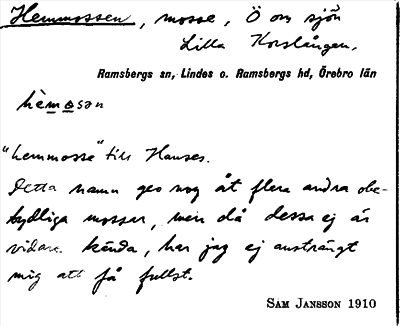 Hemmossen, mosse, Ö om sjön
Lilla Korslången.
Ramsbergs sn, Lindes o. Ramsbergs hd, Örebro län
hèmosən
"hemmosse" till Hanses.
Detta namn ges nog åt flera andra obe-
tydliga mossar, men då dessa ej är
vidare kända, har jag ej ansträngt
mig att få fullst.
SAM JANSSON 1910